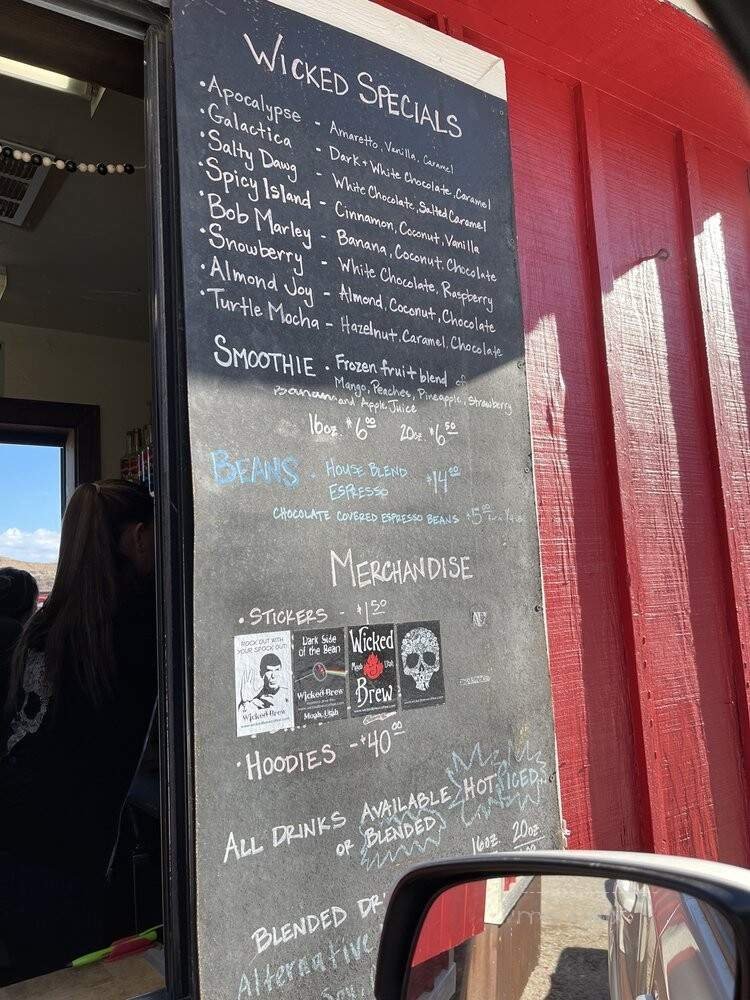 WICKED SPECIALS
• Apocalypse - Amaretto, Vanilla, Caramel
• Galactica - Dark + White Chocolate, Caramel
• Salty Dawg - White Chocolate, Salted Caramel
• Spicy Island - Cinnamon, Coconut, Vanilla
• Bob Marley - Banana, Coconut, Chocolate
• Snowberry - White Chocolate, Raspberry
• Almond Joy - Almond, Coconut, Chocolate
• Turtle Mocha - Hazelnut, Caramel, Chocolate
SMOOTHIE • Frozen fruit blend of
Mango, Peaches, Pineapple, Strawberry
Banana and Apple Juice
16oz. $6.00 20oz $6.50
BEANS • HOUSE BLEND
ESPRESSO $14.00
CHOCOLATE COVERED ESPRESSO BEANS
MERCHANDISE
• STICKERS - $1.50
ROCK OUT WITH
YOUR SPOCK OUT!
Wicked Brew
Dark Side
of the Bean
Wicked Brew
Moab, Utah
Wicked
Moab Utah
Brew
• HOODIES - $40.00
ALL DRINKS AVAILABLE HOT, ICED,
OR BLENDED
16oz. 20oz.
BLENDED
Alternative